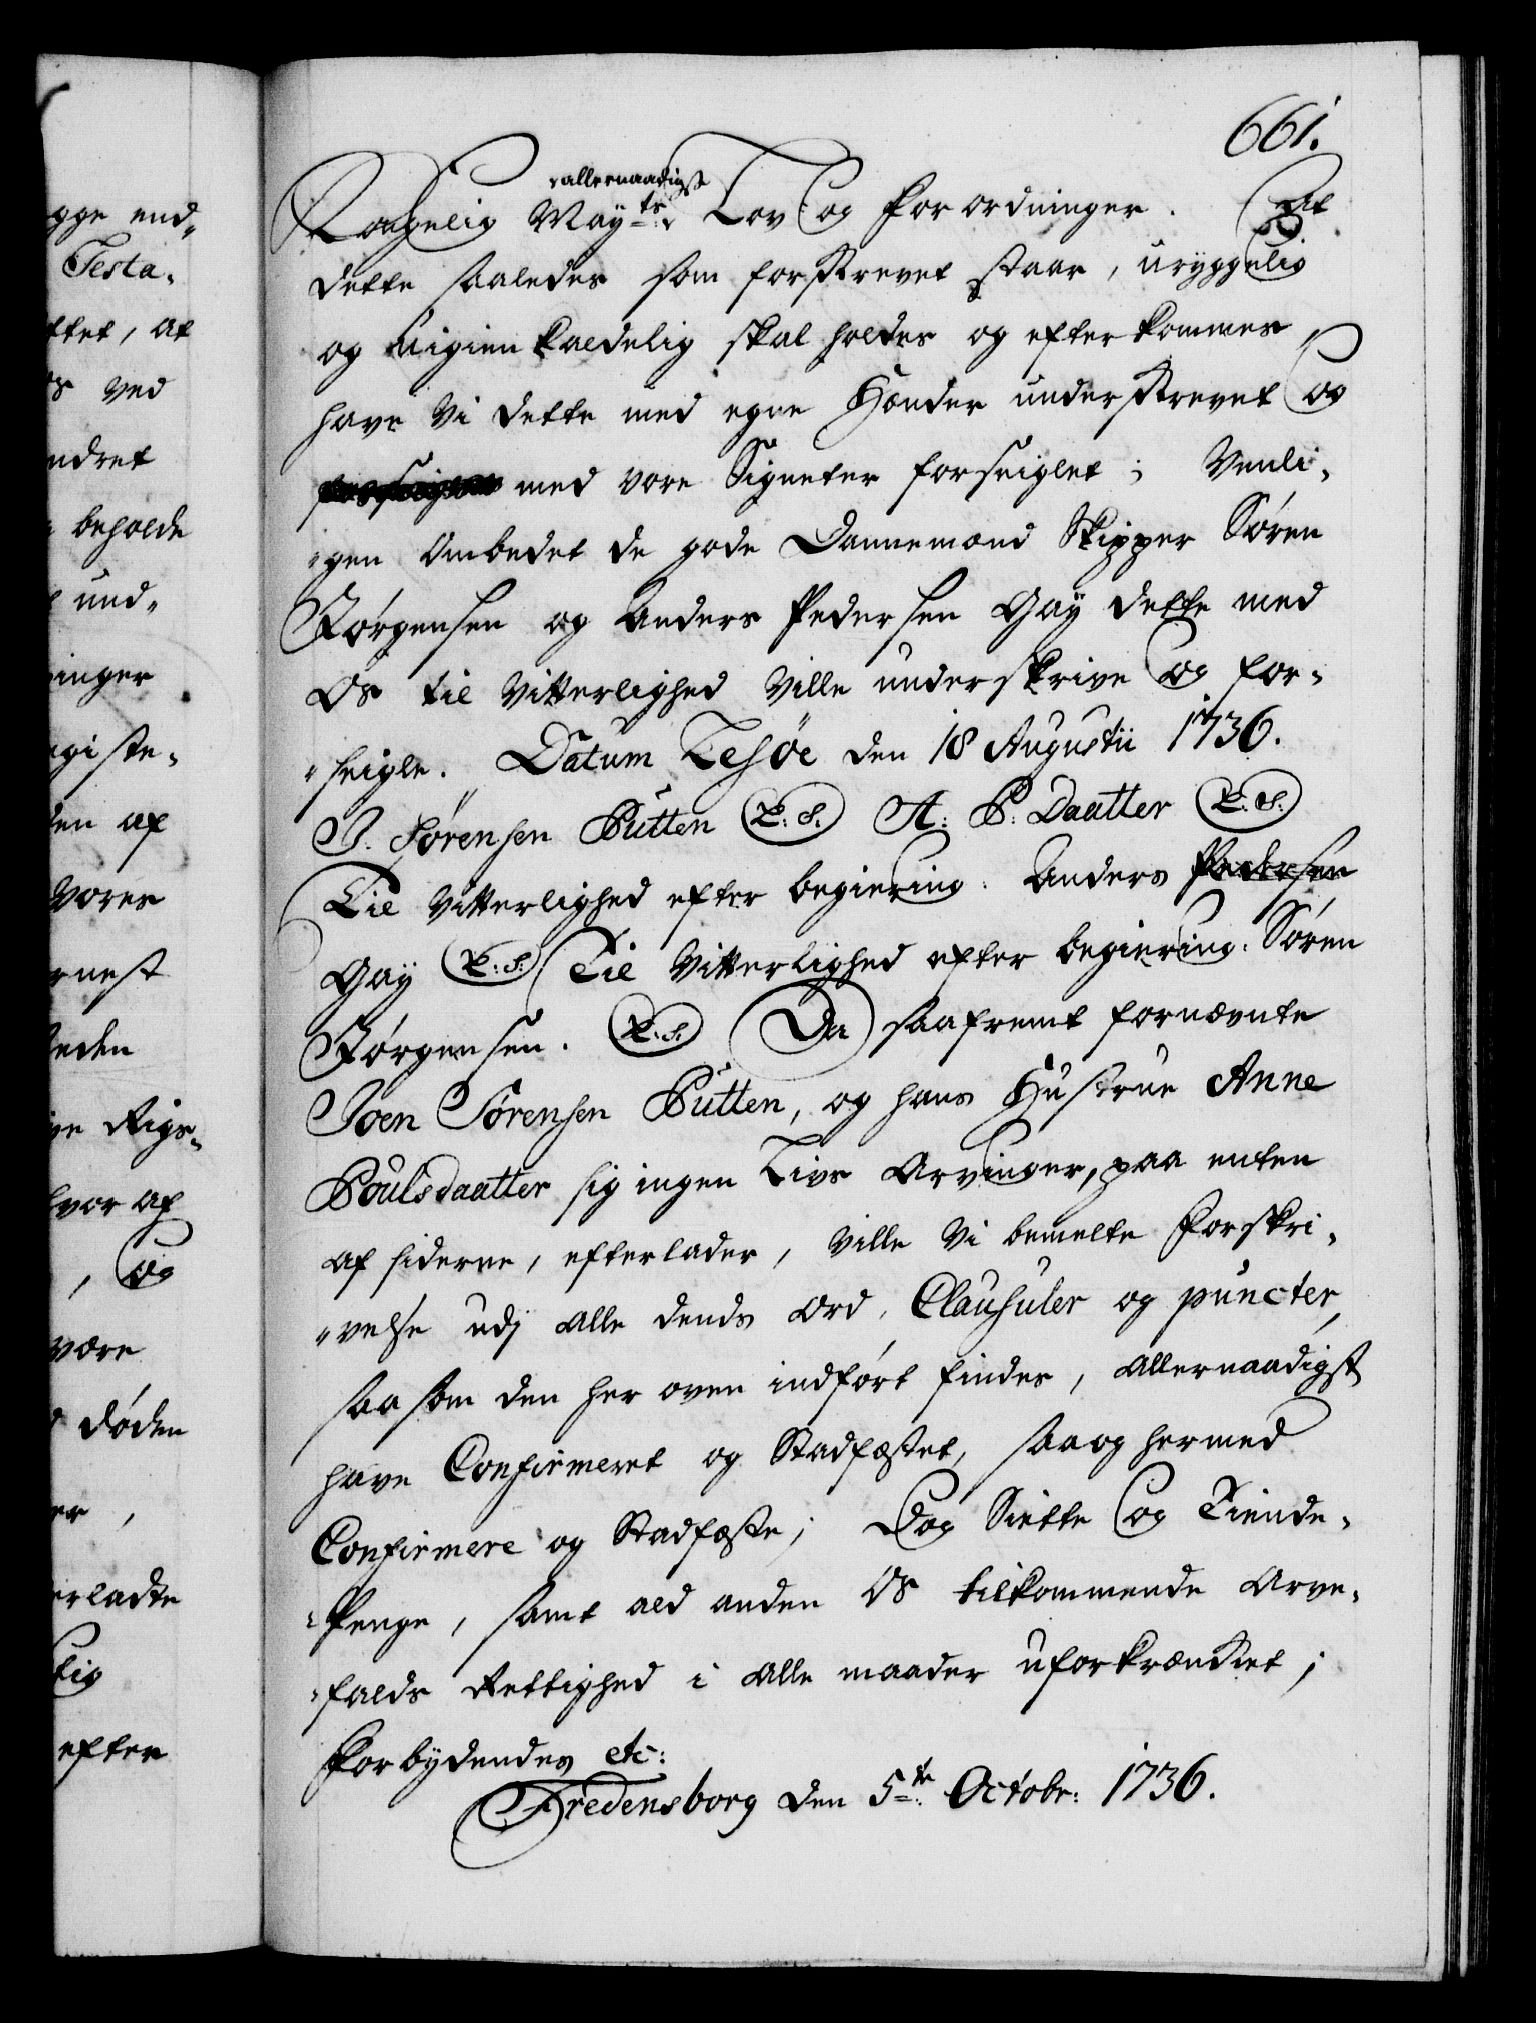 661.
allernaadigst
Kongelig May:ts Lov og forordninger. At
dette saaledes som forskrevet staar, uryggelig
og uigienkaldelig skal holdes og efterkommes
have Vi dette med egne Hænder underskrevet og
med vore Signeter forseiglet; Venli-
gen ombedet de gode Dannemænd Skipper Sören
Jörgensen og Anders Pedersen Gay dette med
Os til Vitterlighed ville underskrive og for-
seigle. Datum Lesöe den 18 Augustii 1736.
J. Sörensen Butten L:S. A: P: Daatter L:S.
Til Vitterlighed efter begiering. Anders Pedersen
Gay L:S. Til Vitterlighed efter begiering. Sören
Jörgensen. L.S. Da saafremt fornævnte
Joen Sörensen Butten, og hans Hustrue Anne
Poulsdaatter sig ingen Livs Arvinger, paa enten
af siderne, efterlader, ville Vi bemelte forskri-
velse udj alle dends ord, Clausuler og puncter,
saa som den her oven indfört findes, allernaadigst
have Confirmeret og Stadfæstet, saa og hermed
Confirmere og Stadfæste; Dog Siette og Tiende-
Penge, samt ald anden Os tilkommende Arve-
falds Rettighed i alle maader uforkrænket;
forbydendes etc:
Fredensborg den 5te Octobr: 1736.
gge end-
Testa-
ttet, at
ved
ndret
beholde
und-
inger
giste-
den af
vores
rnest
eden
ve Rigs-
hvor af
, og
være
döden
er,
erladte
tig
efter